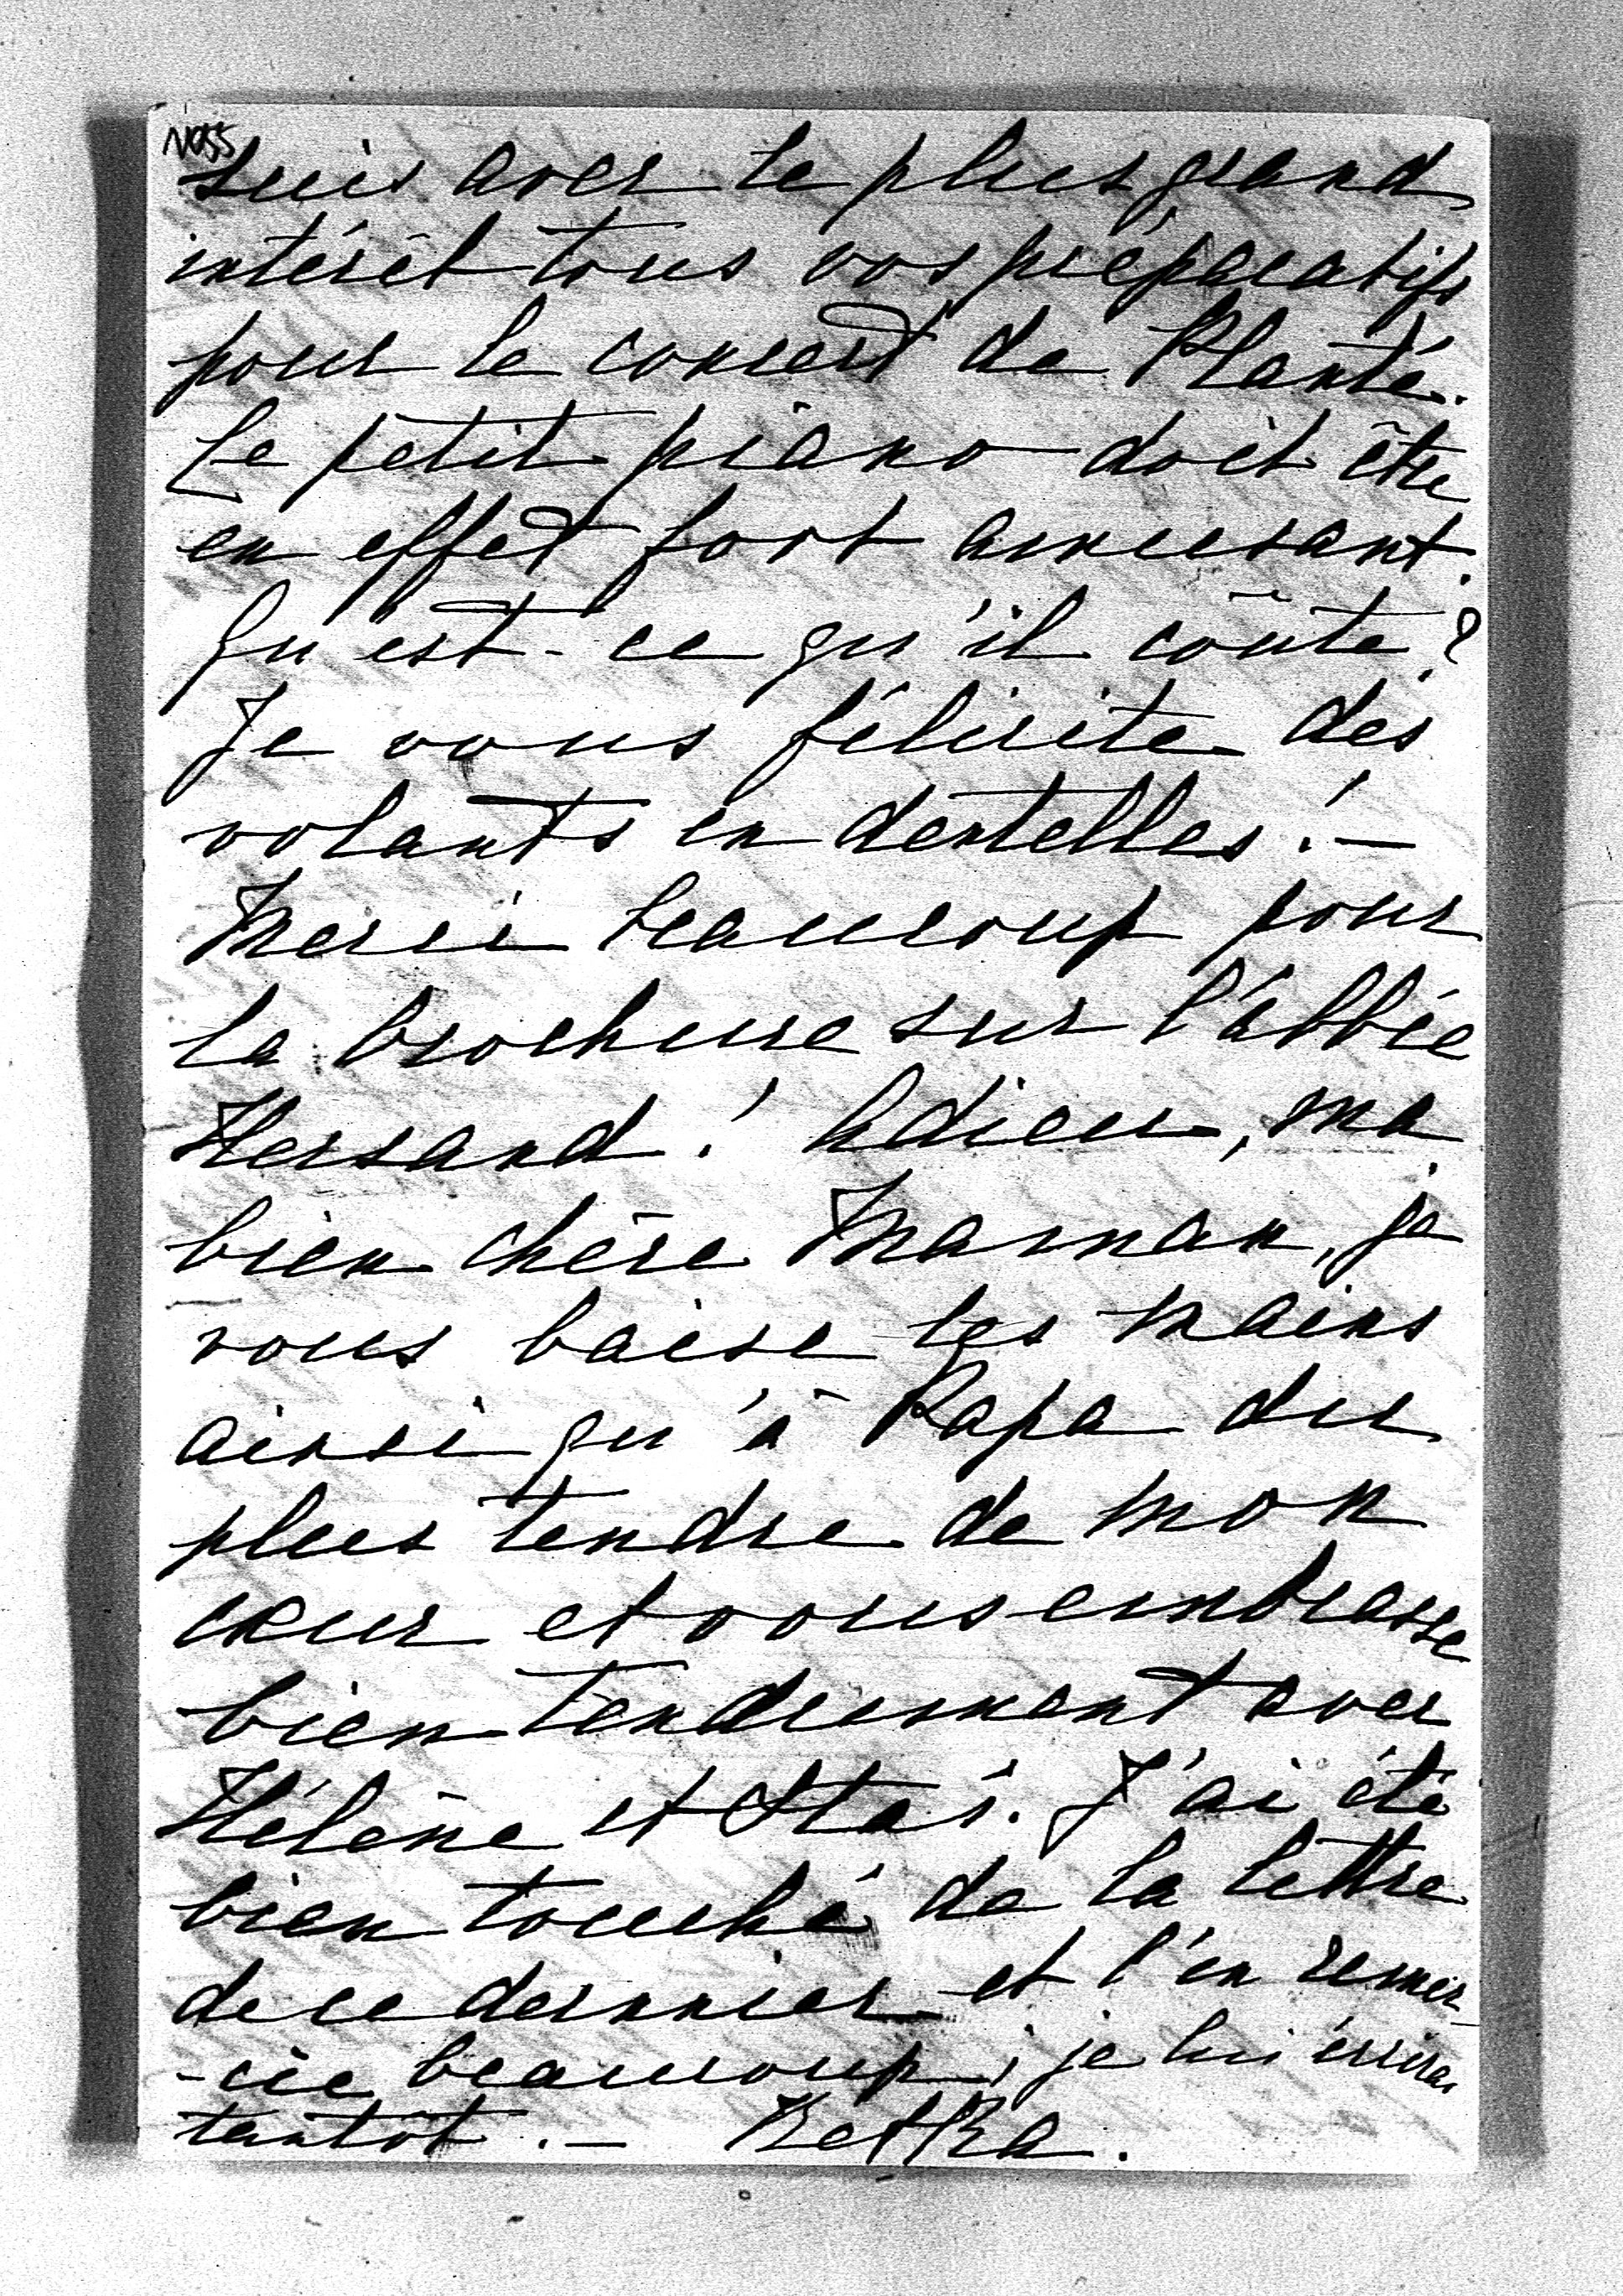 N055
suis avec le plus grand
intérêt tous vos préparatifs
pour le concert de Planté.
Le petit piano doit être
en effet fort amusant.
Qu'est-ce qu'il coûte?
Je vous félicite des
volants en dentelles! —
Merci beaucoup pour
la brochure sur l'abbée
Hersand! Adieu, ma
bien chère Maman, je
vous baise les mains
ainsi qu'à Papa du
plus tendre de mon
cœur et vous embrasse
bien tendrement avec
Hélène et Stas. J'ai été
bien touché de la lettre
de ce dernier et l'en remer-
-cie beaucoup; je lui écrirai
tantôt. —